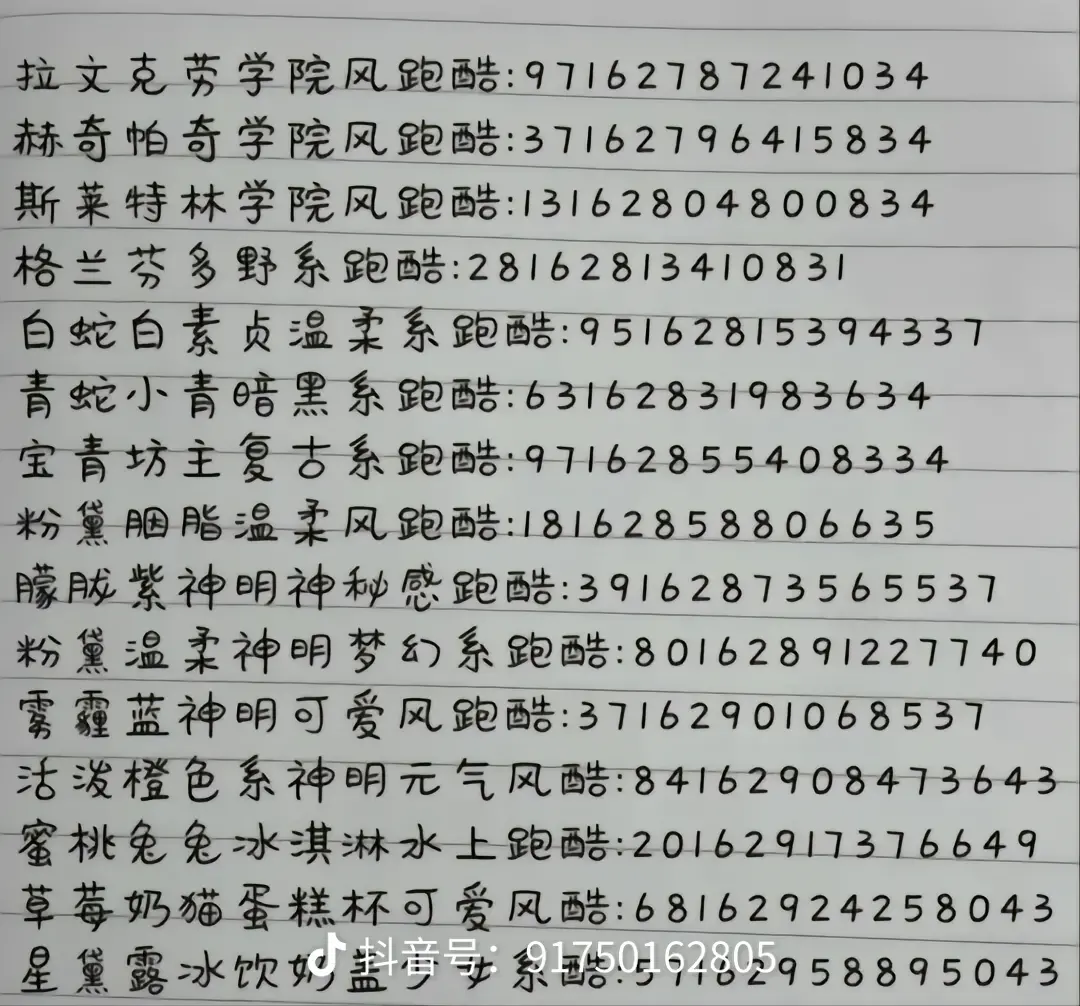 拉文克劳学院风跑酷:97162787241034
赫奇帕奇学院风跑酷:37162796415834
斯莱特林学院风跑酷:13162804800834
格兰芬多野系跑酷:28162813410831
白蛇白素贞温柔系跑酷:95162815394337
青蛇小青暗黑系跑酷:63162831983634
宝青坊主复古系跑酷:97162855408334
粉黛胭脂温柔风跑酷:18162858806635
朦胧紫神明神秘感跑酷:39162873565537
粉黛温柔神明梦幻系跑酷:80162891227740
雾霾蓝神明可爱风跑酷:37162901068537
活泼橙色系神明元气风酷:84162908473643
蜜桃兔兔冰淇淋水上跑酷:20162917376649
草莓奶猫蛋糕杯可爱风酷:68162924258043
星黛露冰饮奶盖少女系酷:
抖音号: 91750162805